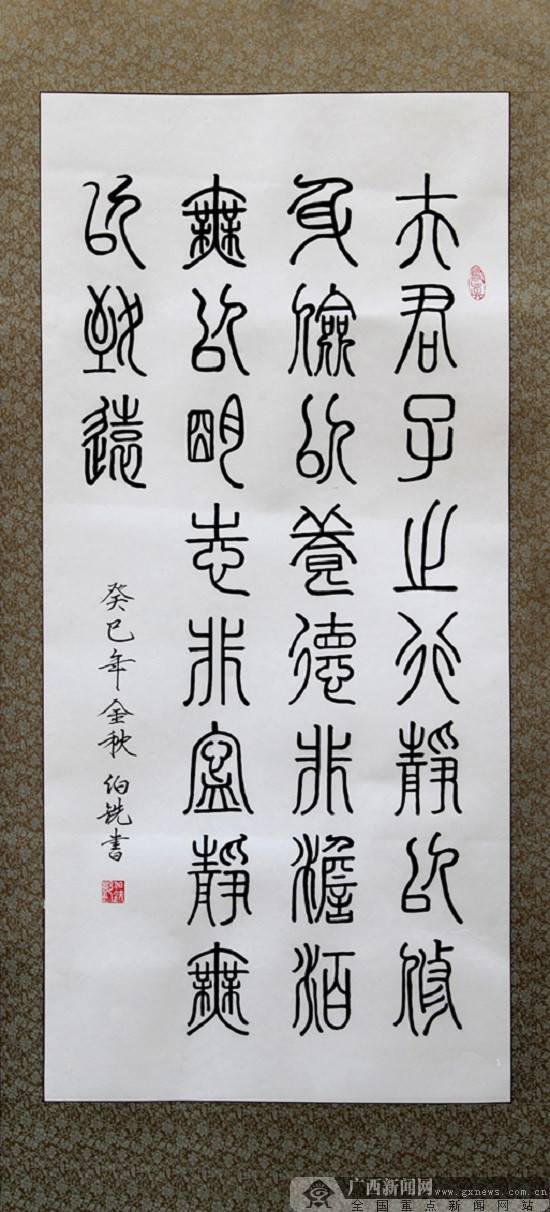 夫君子之行靜以修
身儉以養德非澹泊
無以明志非寍靜無
以致遠
癸巳年金秋 伯銑書
广西新闻网
www.gxnews.com.cn
全国重点新闻网站